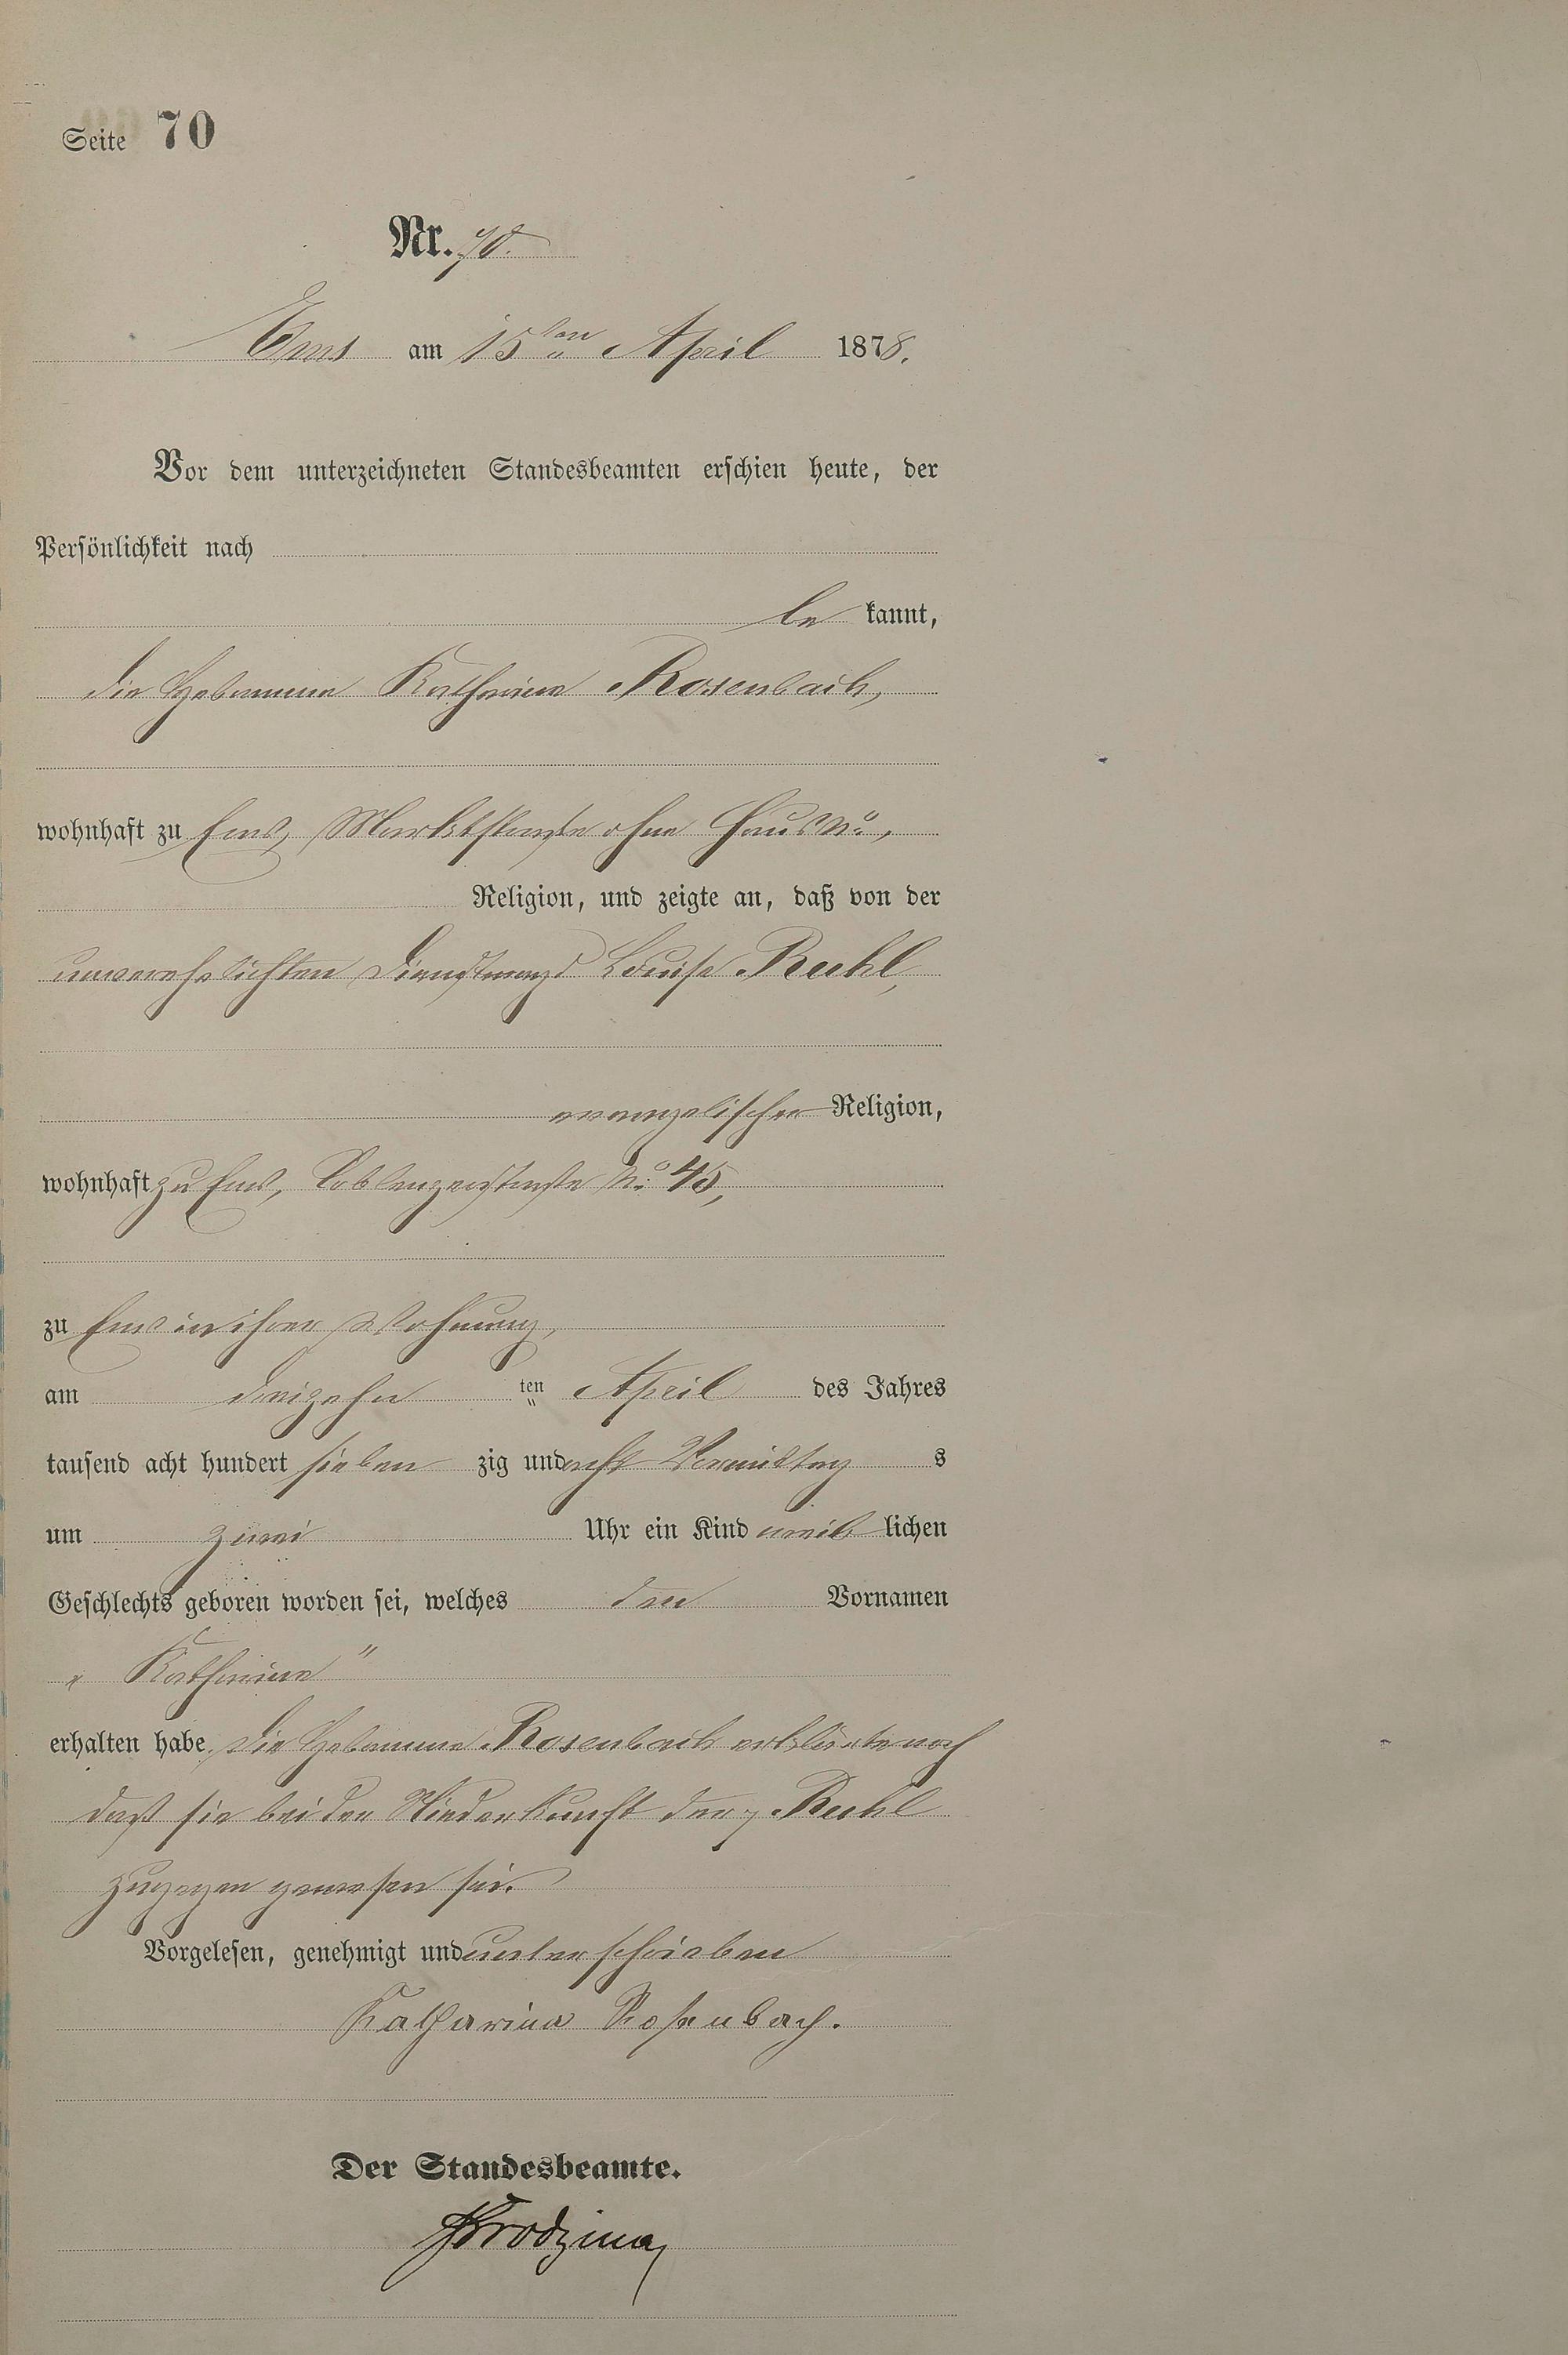 Seite 70
Nr. 70.
Ems am 15ten April 1878.
Vor dem unterzeichneten Standesbeamten erschien heute, der
Persönlichkeit nach
be kannt,
die Hebamme Katharina Rosenbach,
wohnhaft zu Ems, Marktstraße ohne Haus No,
Religion, und zeigte an, daß von der
unverehelichten Dienstmagd Louise Ruhl,
evangelischer Religion,
wohnhaft zu Ems, Coblenzerstraße No 45,
zu Ems in ihrer Wohnung,
am dreizehn ten April des Jahres
tausend acht hundert sieben zig und acht Vormittag s
um zwei Uhr ein Kind weib lichen
Geschlechts geboren worden sei, welches den Vornamen
„Katharina"
erhalten habe. Die Hebamme Rosenbach erklärte noch
daß sie bei der Niederkunft der Ruhl
zugegen gewesen sei.
Vorgelesen, genehmigt und unterschrieben
Katharina Rosenbach.
Der Standesbeamte.